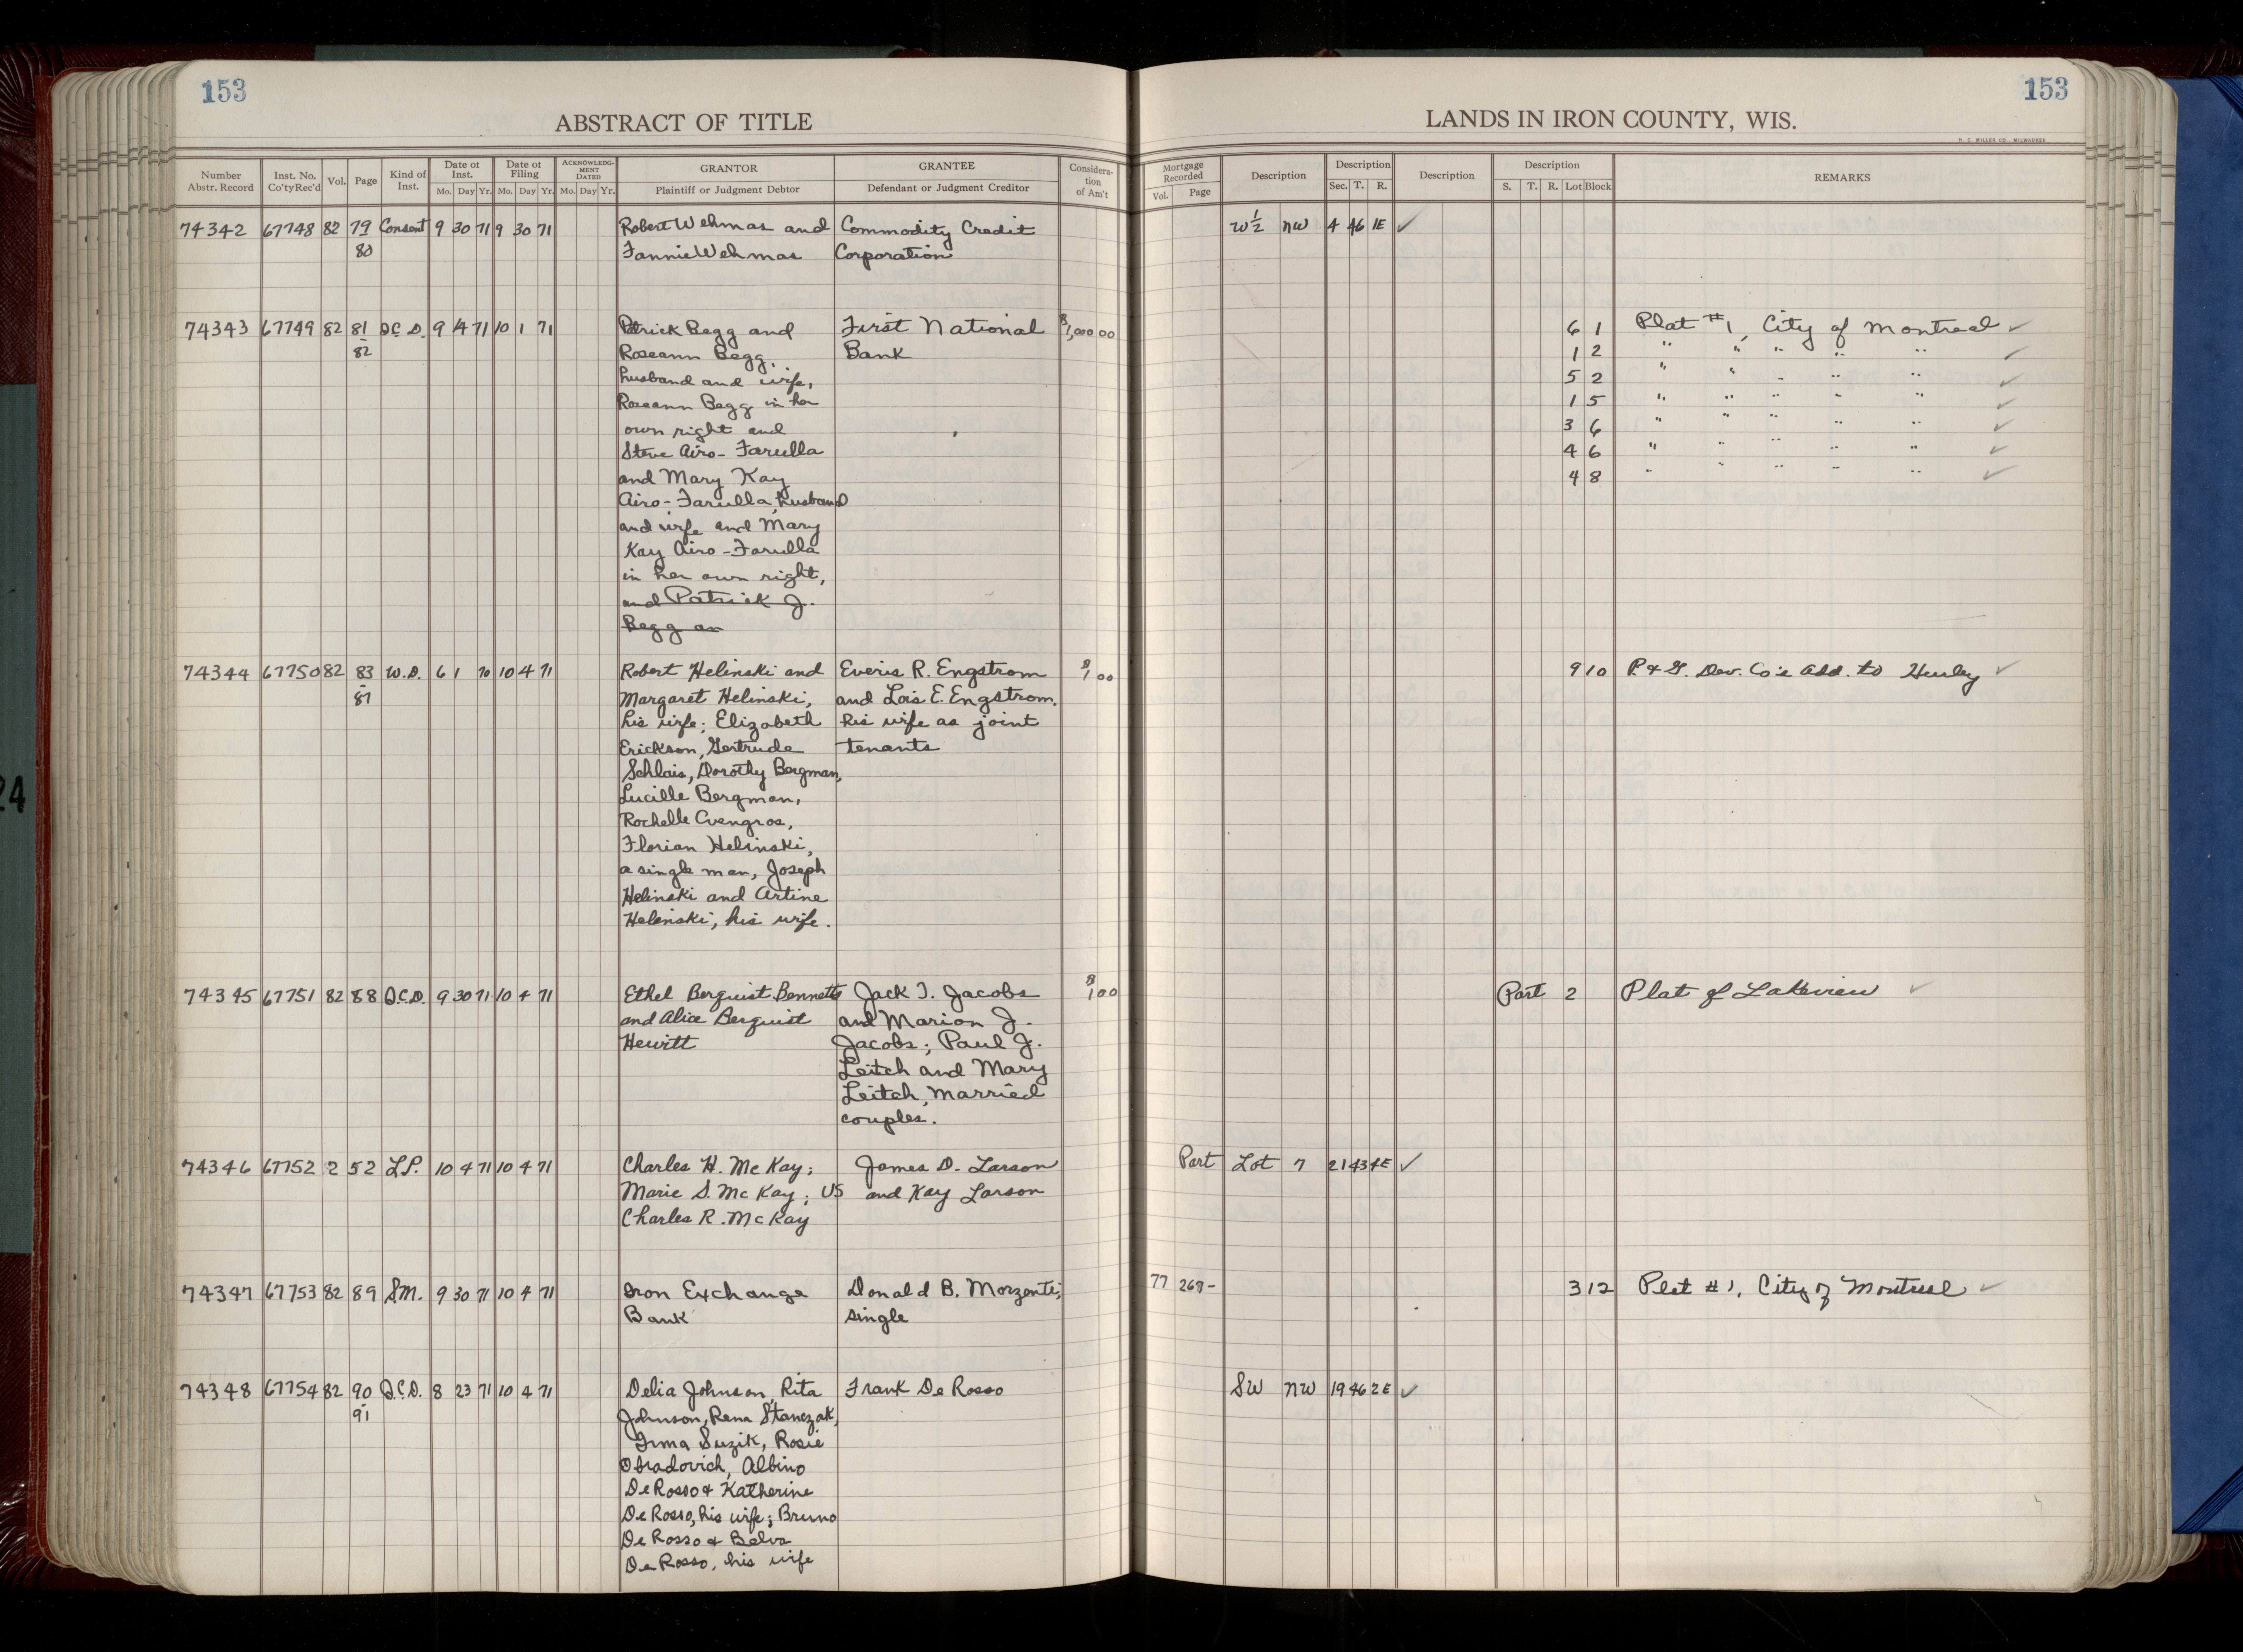 153
153
ABSTRACT OF TITLE
LANDS IN IRON COUNTY, WIS.
H. C. MILLER CO., MILWAUKEE
Number Abstr. Record
Inst. No. Co'ty Rec'd
Vol.
Page
Kind of Inst.
Date of Inst.
Mo. Day Yr.
Date of Filing
Mo. Day Yr.
ACKNOWLEDGMENT DATED
Mo. Day Yr.
GRANTOR
Plaintiff or Judgment Debtor
GRANTEE
Defendant or Judgment Creditor
Consideration of Am't
Mortgage Recorded
Vol. Page
Description
Description
Sec. T. R.
Description
Description
S. T. R. Lot Block
REMARKS
74342 67748 82 79 Consent 9 30 71 9 30 71 Robert Wehmas and Commodity Credit W 1/2 NW 4 46 1E ✓
80 Fannie Wehmas Corporation
74343 67749 82 81 Q.C.D. 9 14 71 10 1 71 Patrick Begg and First National $1,000 00 6 1 Plat #1, City of Montreal ✓
-82 Roseann Begg, Bank 1 2 " " " " " ✓
husband and wife, 5 2 " " " " " ✓
Roseann Begg in her 1 5 " " " " " ✓
own right and 3 6 " " " " " ✓
Steve Airo-Farulla 4 6 " " " " " ✓
and Mary Kay 4 8 " " " " " ✓
Airo-Farulla, husband
and wife and Mary
Kay Airo-Farulla
in her own right,
and Patrick J.
Begg an
74344 67750 82 83 W.D. 6 1 70 10 4 71 Robert Helinski and Everis R. Engstrom $1 00 9 10 P. & G. Dev. Co's Add. to Hurley ✓
-87 Margaret Helinski, and Lois E. Engstrom,
his wife; Elizabeth his wife as joint
Erickson, Gertrude tenants
Schlais, Dorothy Bergman,
Lucille Bergman,
Rochelle Cvengros,
Florian Helinski,
a single man, Joseph
Helinski and Artine
Helinski, his wife.
74345 67751 82 88 Q.C.D. 9 30 71 10 4 71 Ethel Berquist Bennetts Jack T. Jacobs $1 00 Part 2 Plat of Lakeview ✓
and Alice Berquist and Marion J.
Hewitt Jacobs; Paul J.
Leitch and Mary
Leitch, married
couples.
74346 67752 2 52 L.P. 10 4 71 10 4 71 Charles H. McKay; James D. Larson Part Lot 7 21 43 4E ✓
Marie S. McKay; VS and Kay Larson
Charles R. McKay
74347 67753 82 89 S.M. 9 30 71 10 4 71 Iron Exchange Donald B. Morzenti; 77 268- 3 12 Plat #1, City of Montreal ✓
Bank single
74348 67754 82 90 Q.C.D. 8 23 71 10 4 71 Delia Johnson, Rita Frank De Rosso SW NW 19 46 2E ✓
-91 Johnson, Rena Stanczak,
Irma Suzik, Rosie
Obradovich, Albino
De Rosso & Katherine
De Rosso, his wife; Bruno
De Rosso & Belva
De Rosso, his wife
24